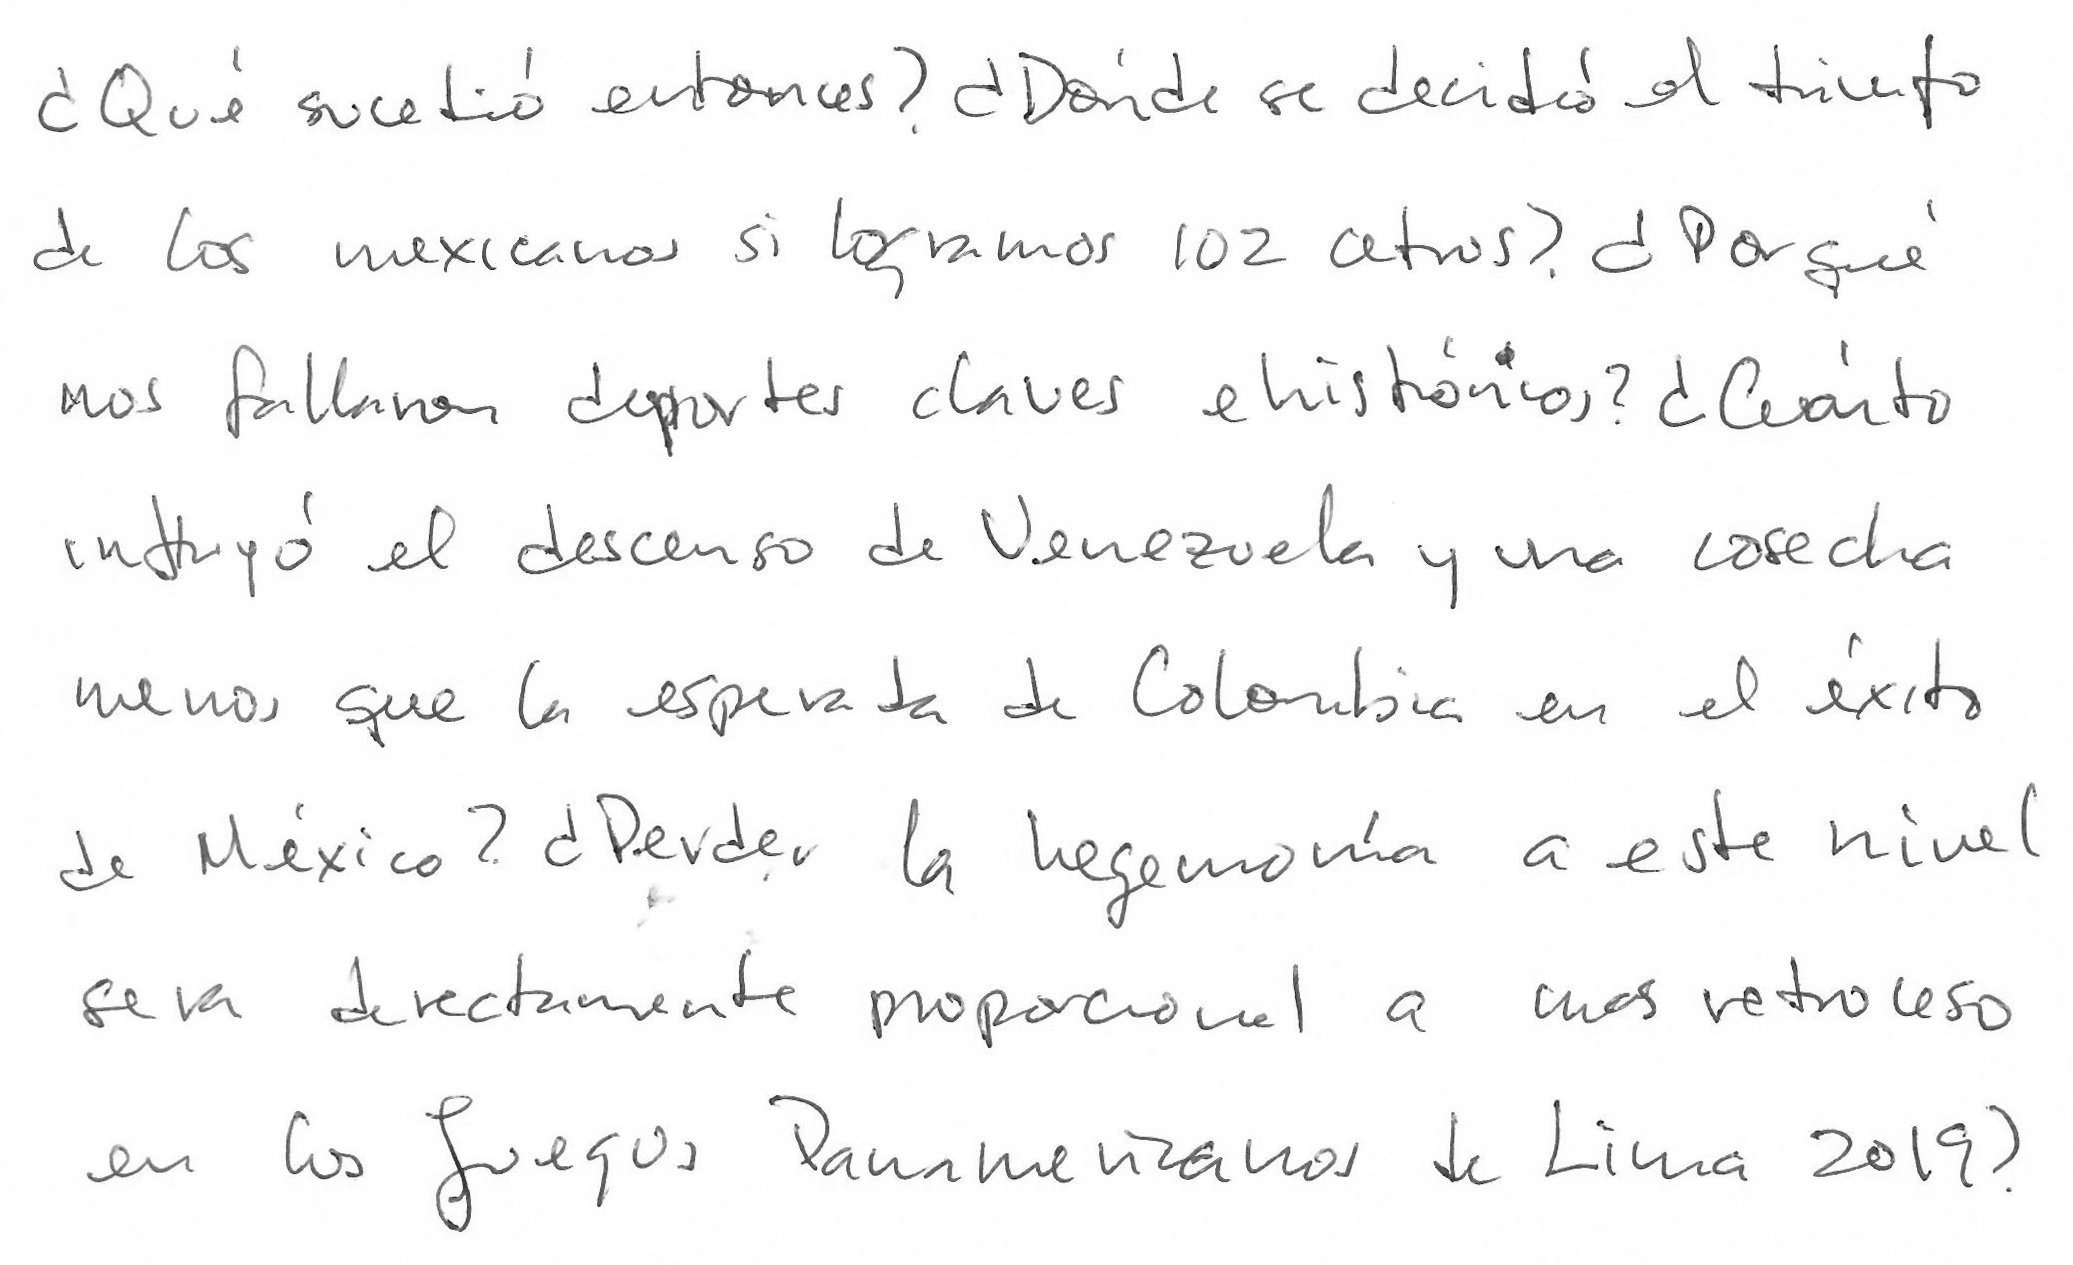 ¿Qué sucedió entonces? ¿Dónde se decidió el triunfo
de los mexicanos si logramos 102 cetros? ¿Por qué
nos fallaron deportes claves e históricos? ¿Cuánto
influyó el descenso de Venezuela y una cosecha
menos que la esperada de Colombia en el éxito
de México? ¿Perder la hegemonía a este nivel
sera directamente proporcional a mas retroceso
en los Juegos Panamericanos de Lima 2019?